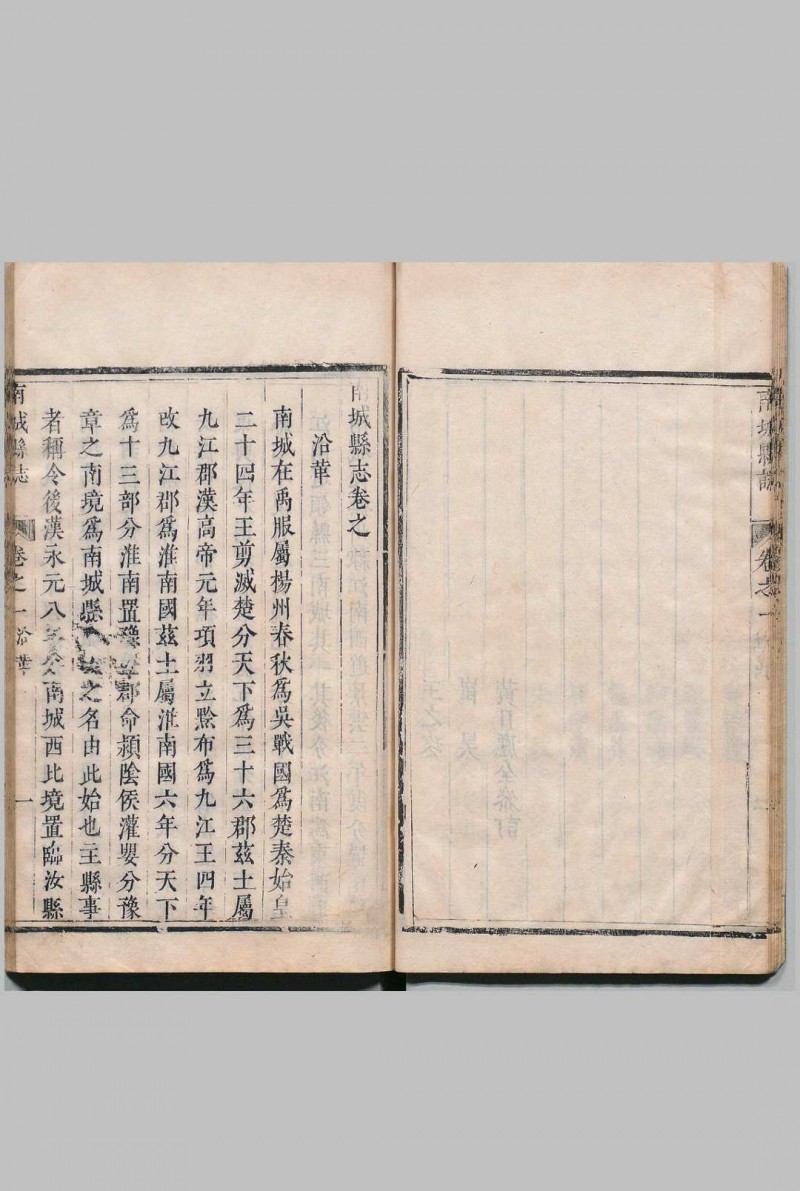 南城縣志
卷之一
南城縣志卷之
沿革
南城在禹服屬楊州春秋爲吳戰國爲楚秦始皇
二十四年王剪滅楚分天下爲三十六郡茲土屬
九江郡漢高帝元年項羽立黥布爲九江王四年
改九江郡爲淮南國茲土屬淮南國六年分天下
爲十三部分淮南置豫章郡命潁陰侯灌嬰分豫
章之南境爲南城縣之名由此始也主縣事
者稱令後漢永元八年分南城西北境置臨汝縣
南城縣志
卷之一
沿革
一